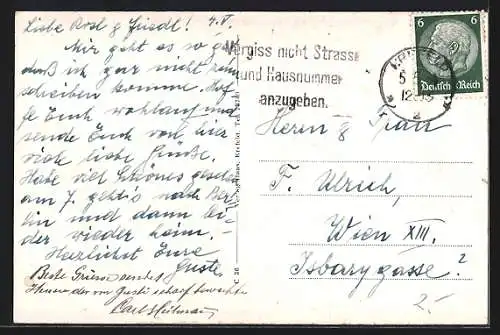 Liebe Rosl & Friedl! 4.V.
Mir geht es so gut
daß ich gar nicht zum
schreiben komme. Hof
fe Euch wohlauf und
sende Euch von hier
viele liebe Grüße.
Habe viel Schönes gesehen
am 7. geht's nach Ber
lin und dann lei-
der wieder heim.-
Herzlichst Eure
Gusti
Beste Grüsse
der von Gusti scharf bewachte
Vergiss nicht Strasse
und Hausnummer
anzugeben.
6 6
Deutsches Reich
5
12
2
Herrn & Frau
F. Ulrich,
Wien XIII.
Isbarygasse ?
2.-
C 26